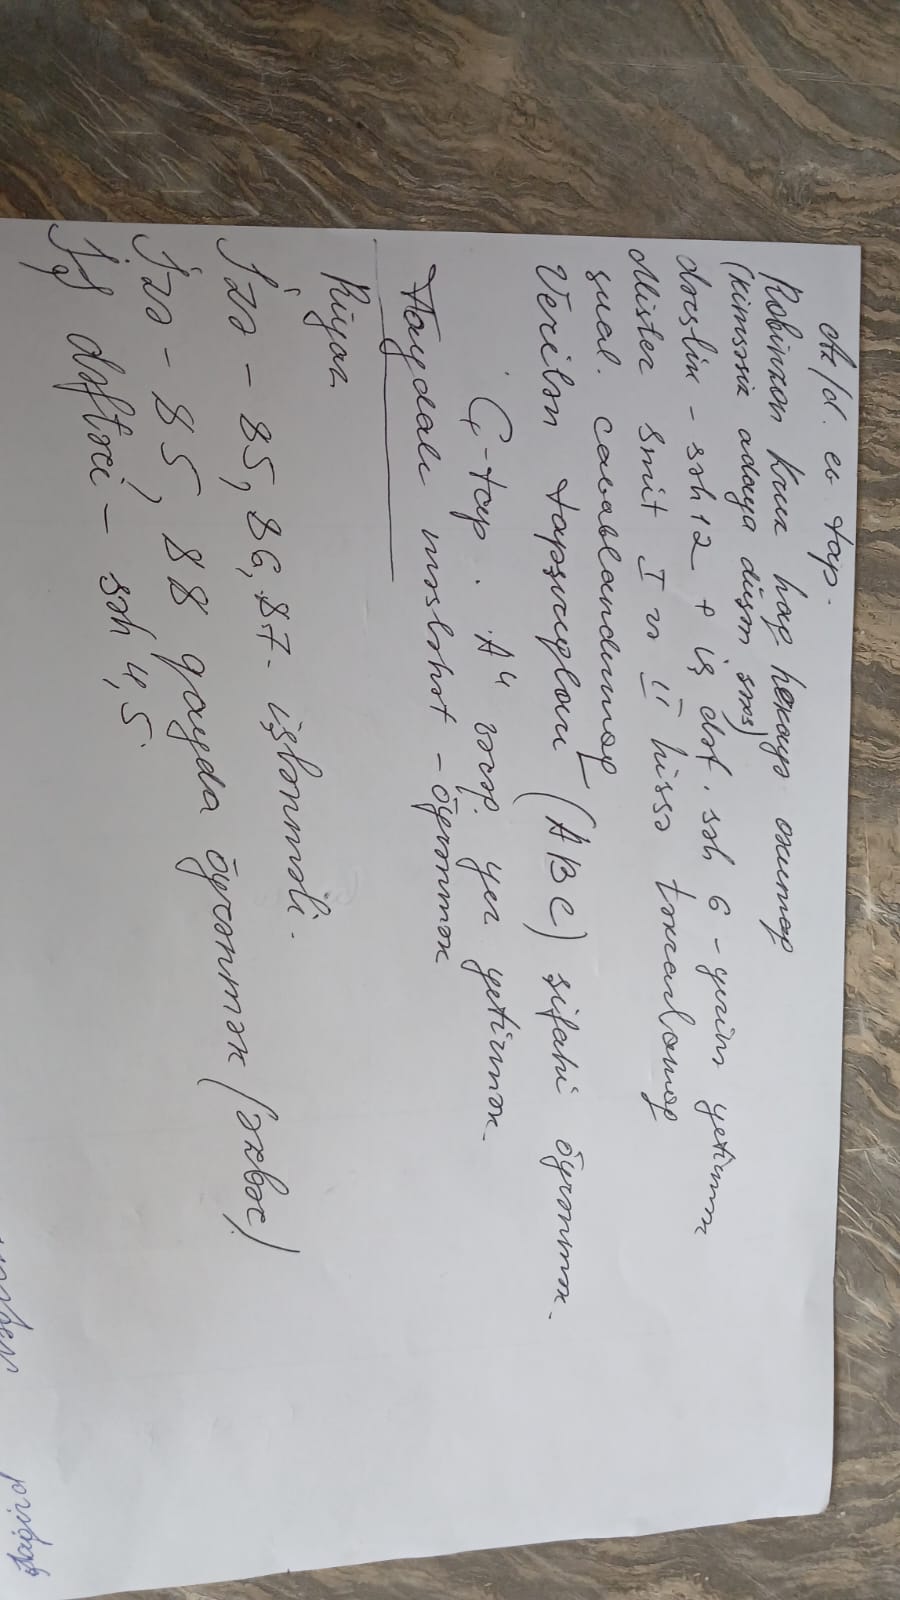 Az/d. ev tap.
Robinzon Kruz haq hekayə oxumaq
(kimsəsiz adaya düşm səs)
dərslik - səh 12 + iş dəf. səh 6 - yerinə yetirmək
Mister Smit I və II hissə təkrarlamaq
sual. cavablandırmaq
Verilən tapşırıqları (ABC) şifahi öyrənmək.
Ç-tap. A4 vərəq. yer yetirmək.
Faydalı məsləhət - öyrənmək
Riyaz
İzə - 85, 86, 87. işlənməli.
İzə - 85, 88 qayda öyrənmək (əzbər)
İş dəftəri - səh 4, 5.
Şagird